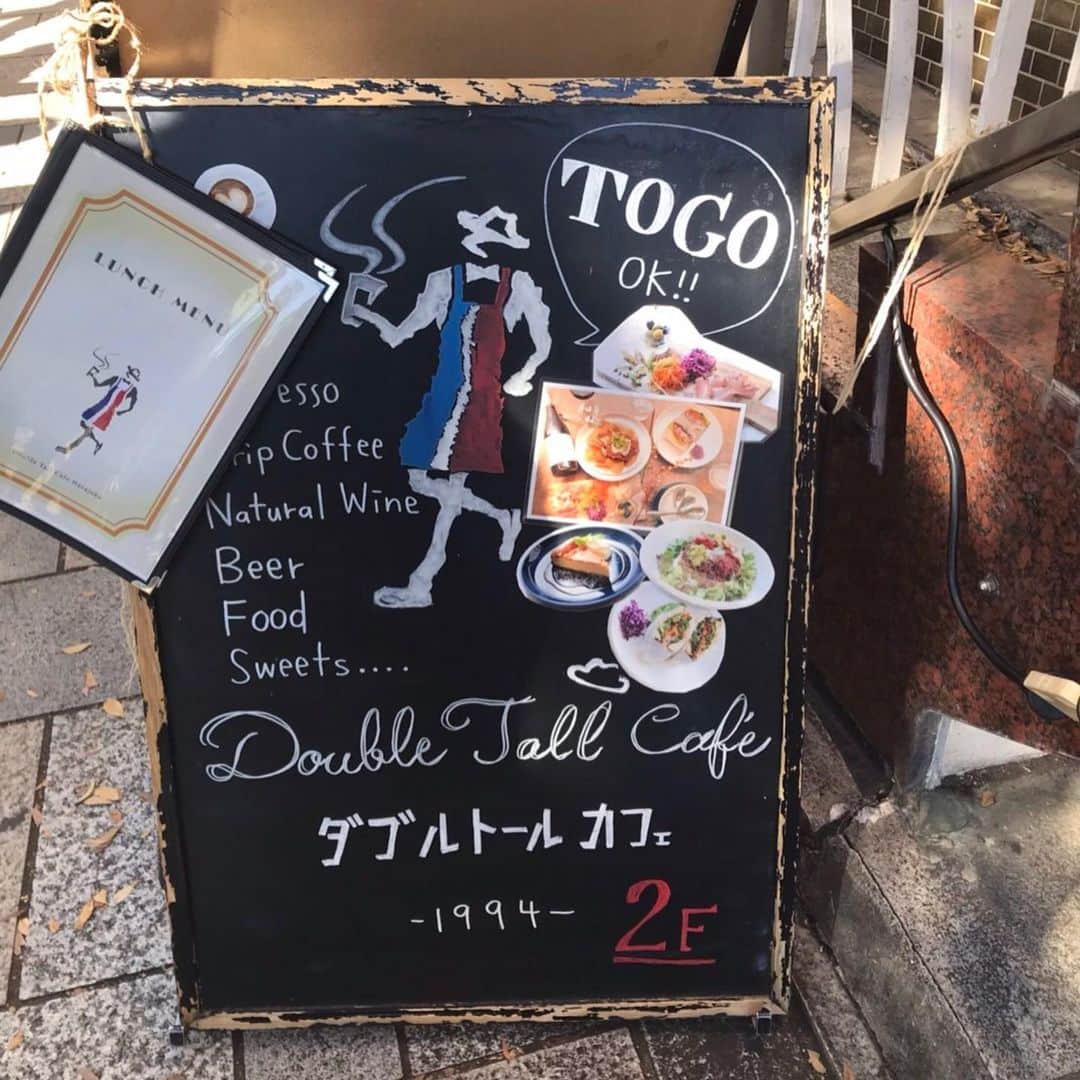 LUNCH MENU
TOGO
OK!!
esso
rip Coffee
Natural Wine
Beer
Food
Sweets....
Double Tall Café
ダブルトール カフェ
-1994-
2F